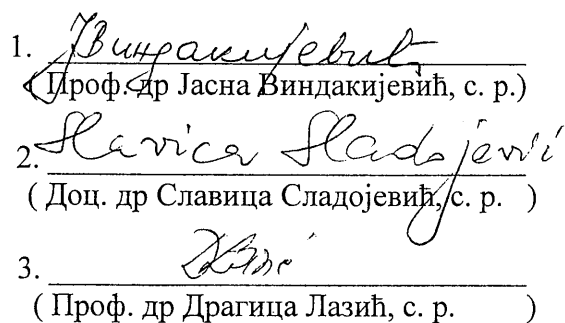 1. ЈВиндакијевић
( Проф. др Јасна Виндакијевић, с. р.)
2. Slavica Sladojević
( Доц. др Славица Сладојевић, с. р. )
3.
( Проф. др Драгица Лазић, с. р. )